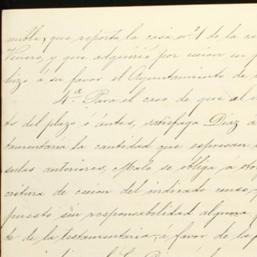 mueble, que reporta la casa nº 1 de la ca
y que adquirió por cesion
hizo á su favor el Ayuntamiento de
4ª. Para el caso de que al
to del plazo ó ántes, satisfaga Diaz á
tamentaria la cantidad que espresan
sulas anteriores, se obliga á oto
critura de cesion del indicado censo,
puesto sin responsabilidad alguna
te de la testamentaria, á favor de la